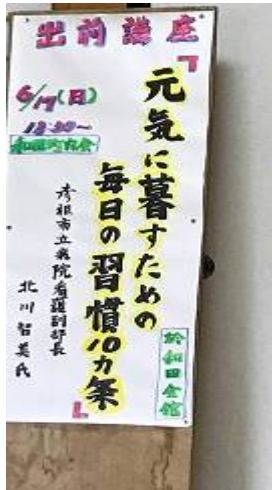 出前講座
6/17(日)
13:30~
和田町内会
「元気に暮すための
毎日の習慣10カ条」
彦根市立病院看護副部長
北川智美氏
於和田会館